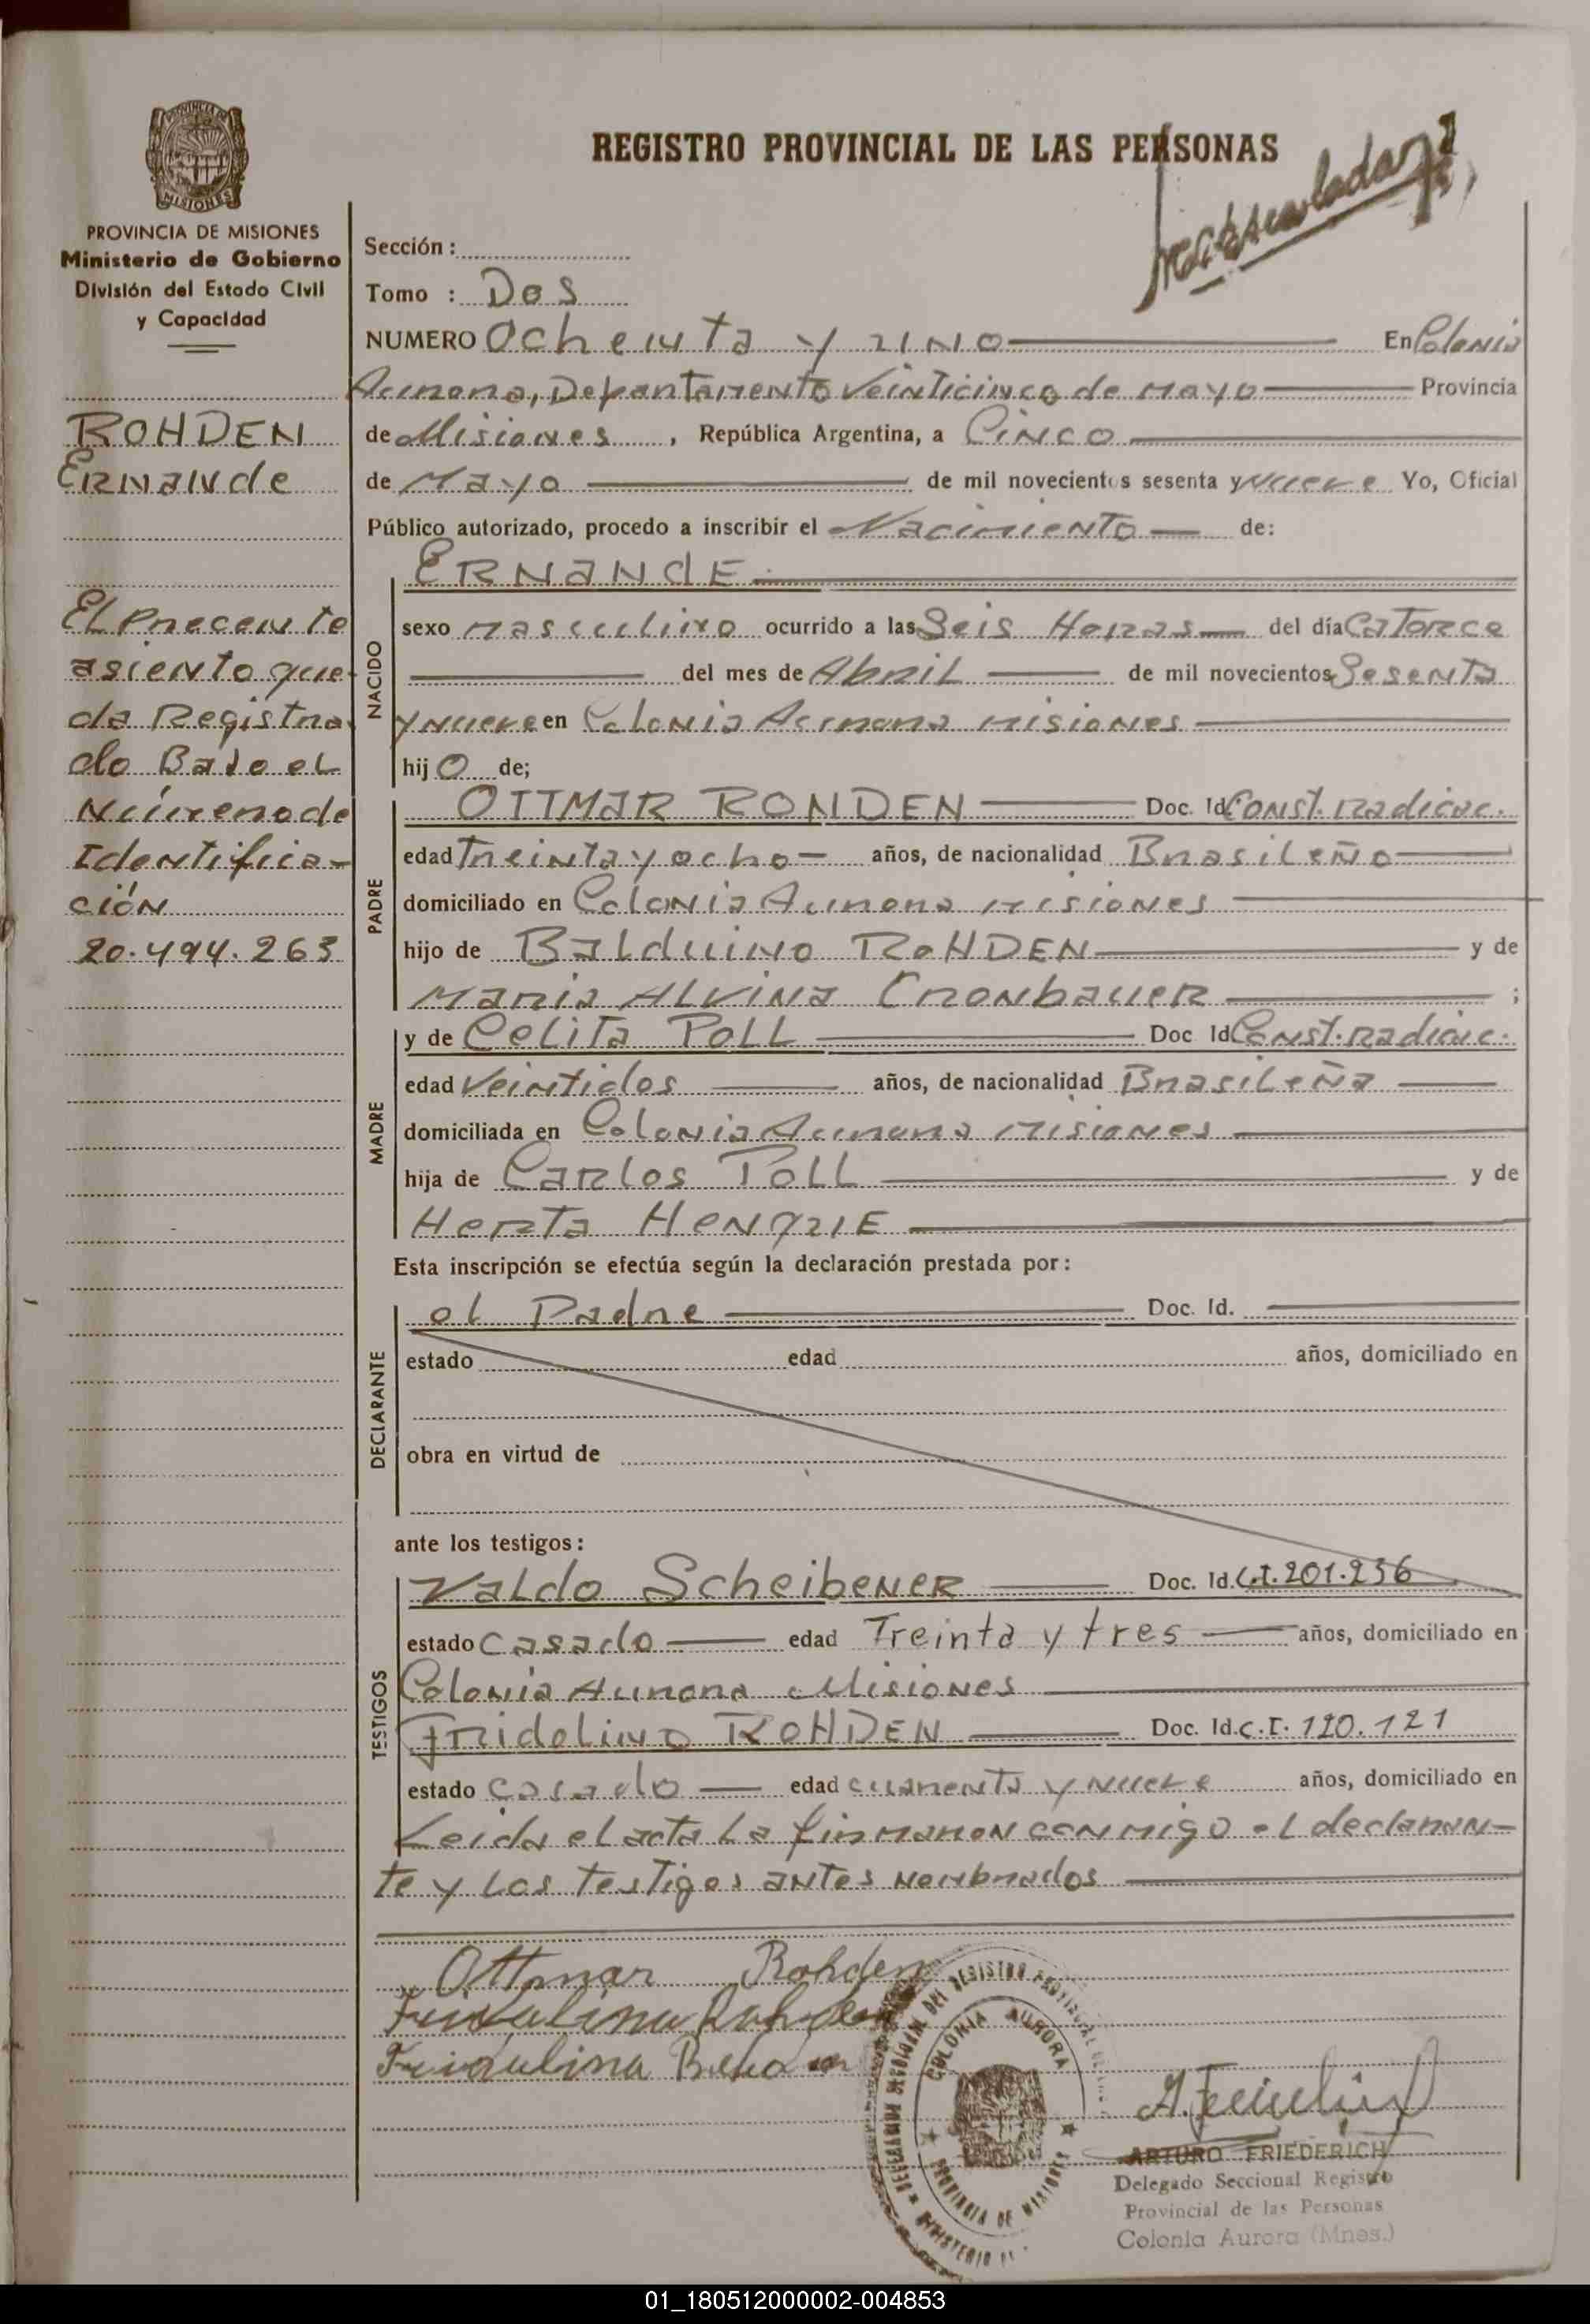 REGISTRO PROVINCIAL DE LAS PERSONAS
MISIONES
PROVINCIA DE MISIONES
Ministerio de Gobierno
División del Estado Civil
y Capacidad
ROHDEN
Ernande
El Precente
asiento que
da Registra
do Bajo el
Número de
Identifica-
ción
20.494.263
Sección :
Tomo : Dos
NUMERO Ochenta y uno En Colonia
Aurora, Departamento Veinticinco de mayo Provincia
de Misiones , República Argentina, a Cinco
de Mayo de mil novecientos sesenta y nueve Yo, Oficial
Público autorizado, procedo a inscribir el Nacimiento de:
NACIDO
ERNANdE
sexo masculino ocurrido a las Seis Horas del día Catorce
del mes de Abril de mil novecientos Sesenta
y nueve en Colonia Aurora misiones
hij O de;
PADRE
OTTMAR ROHDEN Doc. Id Const. radicac.
edad Treinta y ocho años, de nacionalidad Brasileño
domiciliado en Colonia Aurora misiones
hijo de Balduino ROHDEN y de
Maria ALVINA Cronbauer ;
MADRE
y de Celita POLL Doc Id Const. radicac.
edad Veintidos años, de nacionalidad Brasileña
domiciliada en Colonia Aurora misiones
hija de Carlos POLL y de
Herta
Esta inscripción se efectúa según la declaración prestada por:
DECLARANTE
el Padre Doc. Id.
estado edad años, domiciliado en
obra en virtud de
ante los testigos:
TESTIGOS
Valdo Scheibener Doc. Id. C.I. 201.236
estado casado edad Treinta y tres años, domiciliado en
Colonia Aurora Misiones
Fridolino ROHDEN Doc. Id. C.I. 120.121
estado casado edad cuarenta y nueve años, domiciliado en
Leida el acta La firmaron conmigo el declaran-
te y Los testigos antes nombrados
Ottmar Rohden
COLONIA AURORA
PROVINCIA DE MISIONES
ARTURO FRIEDERICH
Delegado Seccional Registro
Provincial de las Personas
Colonia Aurora (Mnes.)
01_180512000002-004853